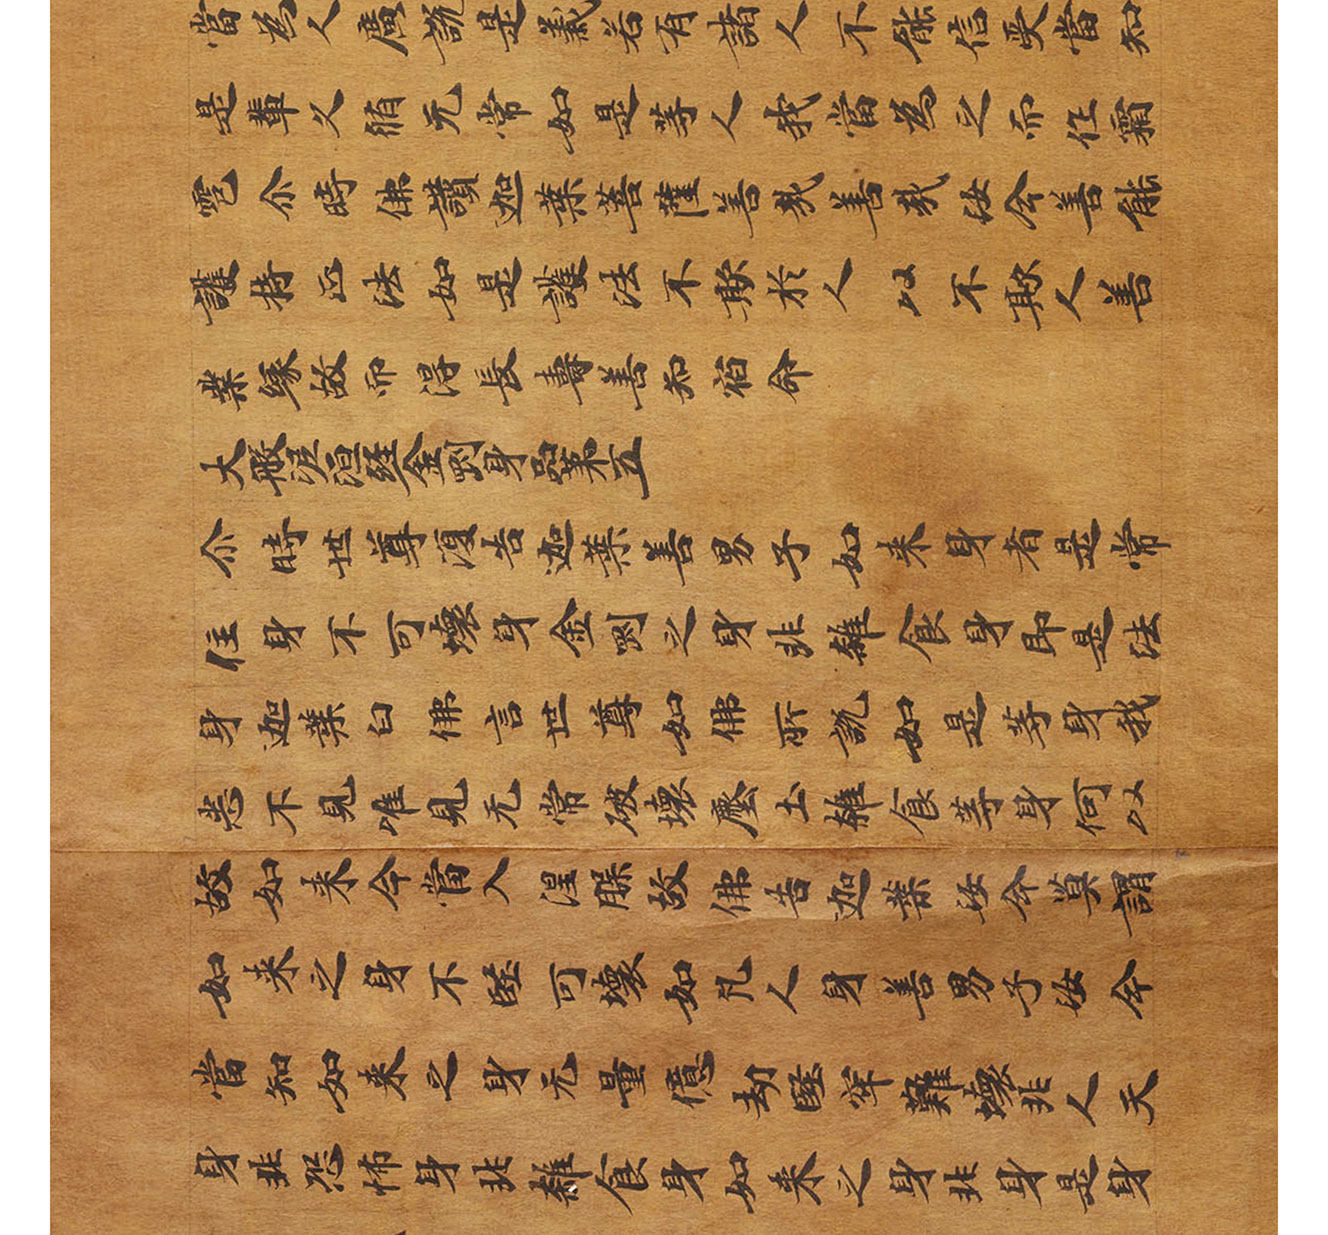 當為人廣說是義若有諸人不能信受當知
是輩久脩无常如是等人我當為之而作霜
雹尒時佛讚迦葉菩薩善哉善哉汝今善能
護持正法如是護法不欺於人以不欺人善
業緣故而得長壽善知宿命
大般泥洹經金剛身品第五
尒時世尊復告迦葉善男子如来身者是常
住身不可壞身金剛之身非雜食身即是法
身迦葉白佛言世尊如佛所說如是等身我
悉不見唯見无常破壞塵土雜食等身何以
故如来今當入涅槃故佛告迦葉汝今莫謂
如来之身不堅可壞如凡人身善男子汝今
當知如来之身无量億劫堅牢難壞非人天
身非恐怖身非雜食身如来之身非身是身